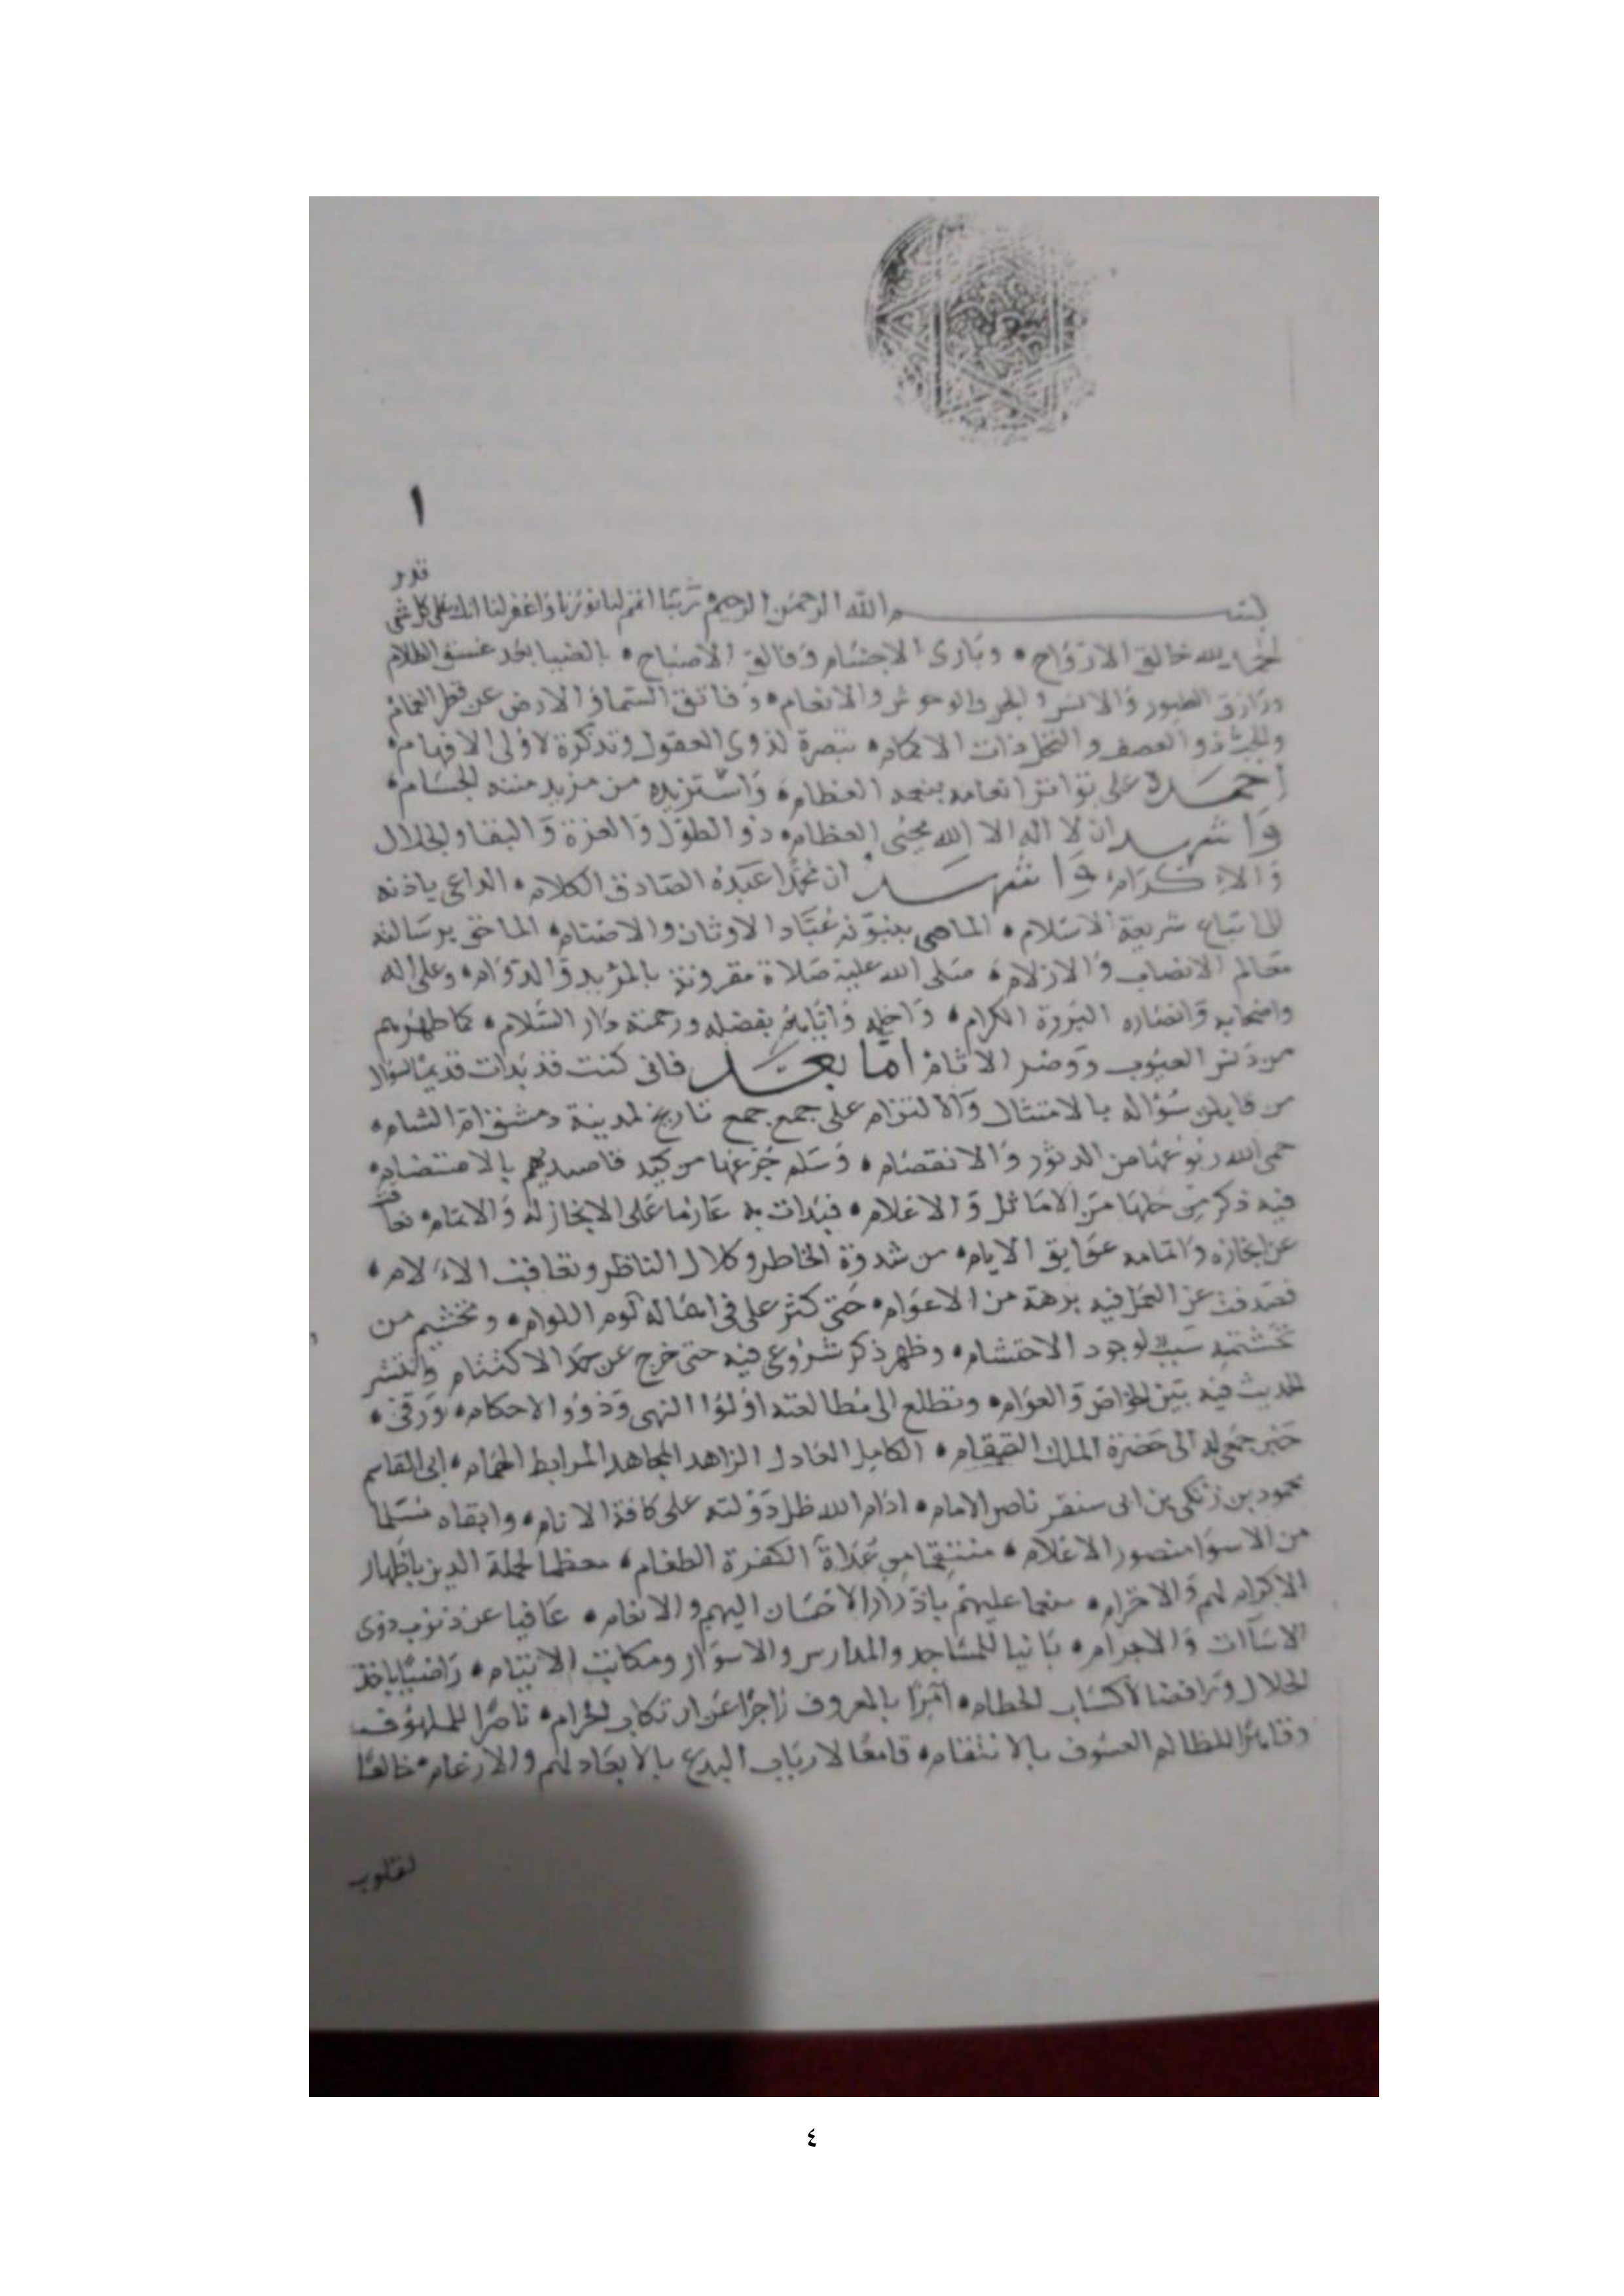 ١
قدير
بسم الله الرحمن الرحيم ربنا اتمم لنا نورنا واغفر لنا انك على كل شى
الحمد لله خالق الارواح وبارى الاجسام وفالق الاصباح بالضيا بعد غسق الظلام
ورازق الطيور والانس والجن والوحوش والانعام وفاتق السما والارض عن قطر الغمام
والحب ذو العصف والنخل ذات الاكمام تبصرة لذوى العقول وتذكرة لاولى الافهام
احمده على تواتر انعامه العظام واستزيده من مزيد مننه الجسام
واشهد ان لا اله الا الله محيى العظام ذو الطول والعزة والبقا والجلال
والاكرام واشهد ان محمدا عبده الصادق الكلام الداعى باذنه
الى اتباع شريعة الاسلام الماحى بنبوته عباد الاوثان والاصنام الماحى برسالته
معالم الانصاب والازلام صلى الله عليه صلاة مقرونة والدوام وعلى اله
واصحابه وانصاره البررة الكرام واحلهم وايانا بفضله ورحمته دار السلام كما طهرهم
من دنس العيوب ووضر الاثام اما بعد فانى كنت قد بدات قديما لسؤال
من قابلت سؤاله بالامتثال والالتزام على جمع تاريخ لمدينة دمشق ام الشام
حمى الله ربوعها من الدثور والانفصام وسلم جرعها من كيد قاصديهم بالاهتضام
فيه ذكر من حلها من الاماثل والاعلام فبدات به عازما على الانجاز له والاتمام فعاقت
عن انجازه واتمامه عوايق الايام من شدوة الخاطر وكلال الناظر وتعاقب الالام
فصدفت عن العمل فيه برهة من الاعوام حتى كثر على فى اهماله لوم اللوام وتحشيم من
تحشيمه سبب لوجود الاحتشام وظهر ذكر شروعى فيه حتى خرج عن حد الاكتتام وانتشر
الحديث فيه بين الخواص والعوام وتطلع الى مطالعته اولوا النهى وذووا الاحكام ورقى
خبر جمعى له الى حضرة الملك القمقام الكامل العادل الزاهد المجاهد المرابط الهمام ابى القاسم
محمود بن زنكى بن اق سنقر ناصر الامام ادام الله ظل دولته على كافة الانام وابقاه مسلما
من الاسوا منصور الاعلام منتقما من عداة الكفرة الطغام معظما لحملة الدين باظهار
الاكرام لهم والاحترام منعما عليهم بادرار الاحسان اليهم والانعام عافيا عن ذنوب ذوى
الاساات والاجرام بانيا للمساجد والمدارس والاسوار ومكاتب الايتام راضيا باخذ
الحلال ورافضا لاكتساب الحطام امرا بالمعروف زاجرا عن ارتكاب الحرام ناصرا للملهوف
وقاهرا للظالم العسوف بالانتقام قامعا لارباب البدع بالابعاد لهم والارغام خالعا
لقلوب
٤